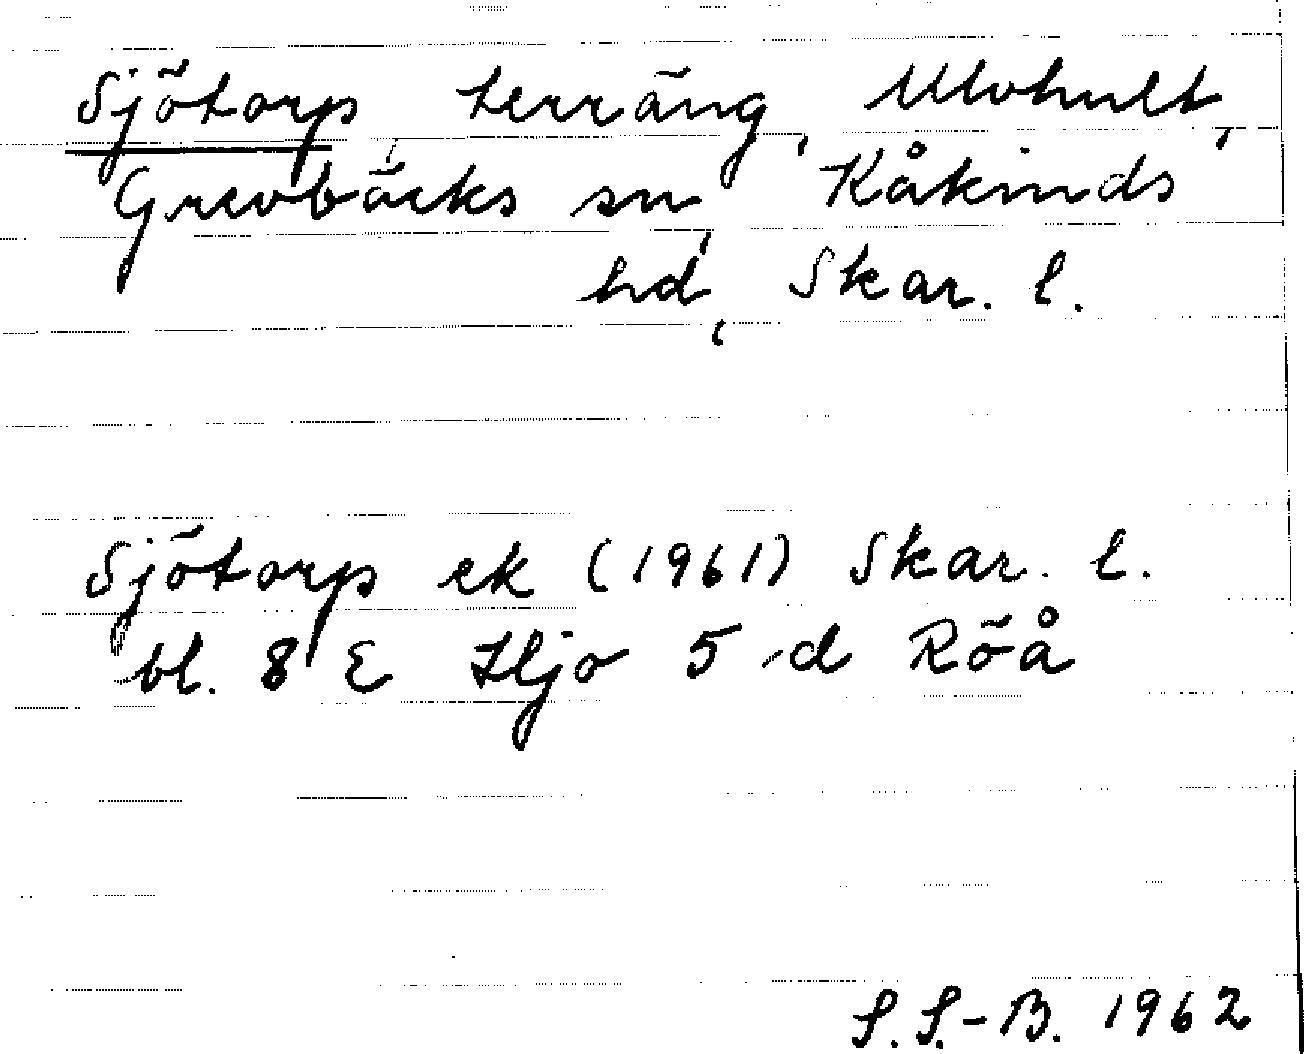 Sjötorp, terräng, Ulvhult,
Grevbäcks sn, Kåkinds
hd, Skar. l.
Sjötorp ek (1961) Skar. l.
bl. 8 E Hjo 5 d Röå
S.S.-B. 1962